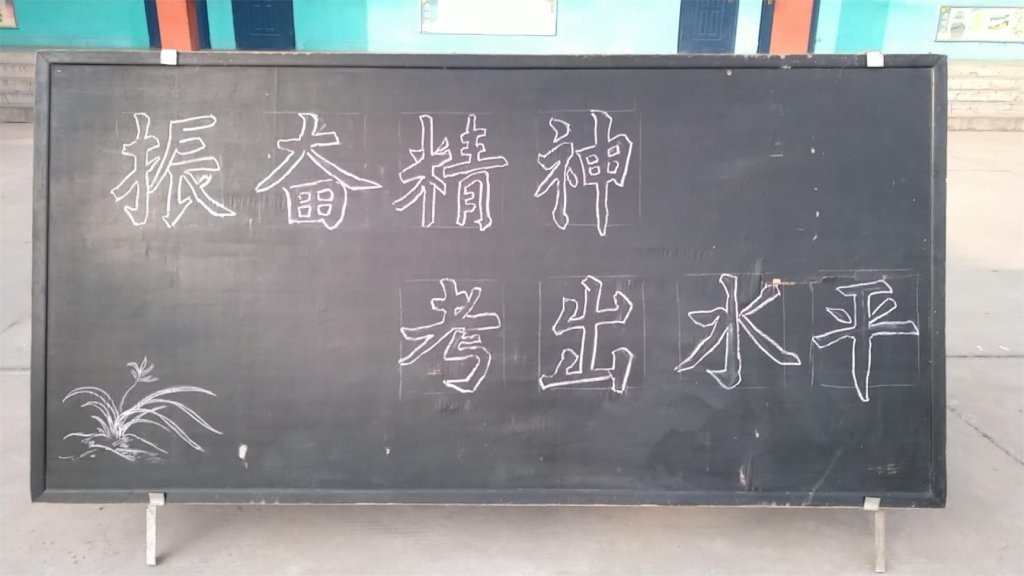 振奋精神
考出水平